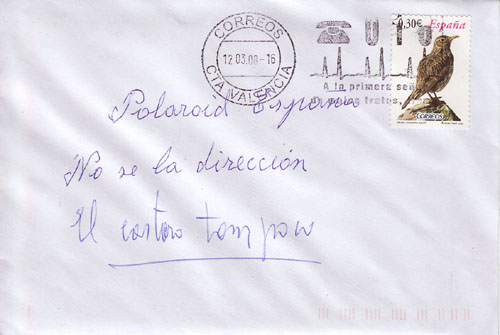 CORREOS
12 03.08-16
CTA VALENCIA
0,30€ España
016
A la primera señ
tratos,
CORREOS
Polaroid España
No se la dirección
El cartero tampoco